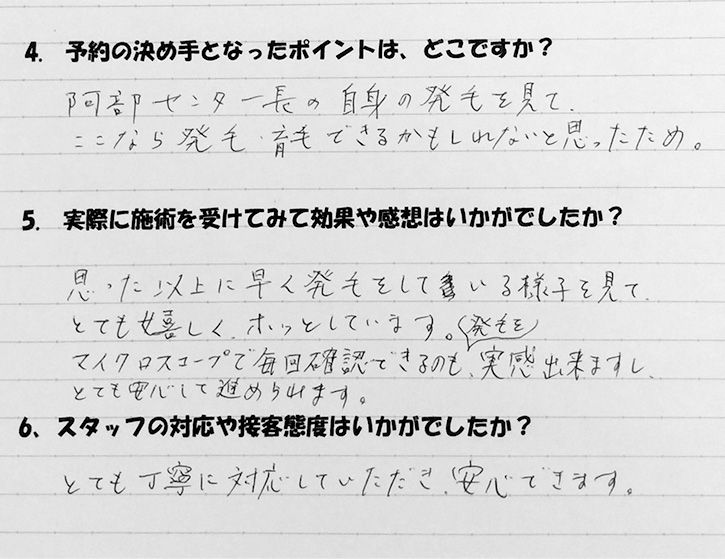 4. 予約の決め手となったポイントは、どこですか？
阿部センター長の自身の発毛を見て、
ここなら発毛・育毛できるかもしれないと思ったため。
5. 実際に施術を受けてみて効果や感想はいかがでしたか？
思った以上に早く発毛をしている様子を見て、
とても嬉しく、ホッとしています。
発毛を
マイクロスコープで毎回確認できるのも、実感出来ますし、
とても安心して進められます。
6、スタッフの対応や接客態度はいかがでしたか？
とても丁寧に対応していただき、安心できます。